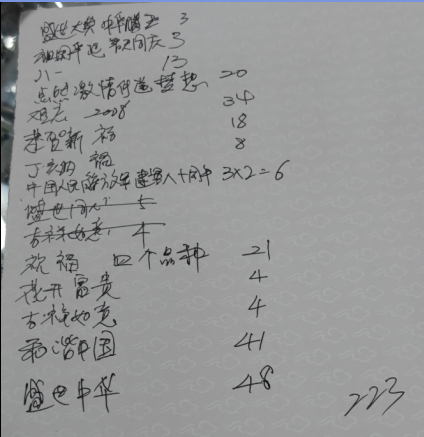 盛世大典 中华腾飞 3
祖国华诞 普天同庆 3
八一 13
点燃激情传递梦想 20
难忘 2008 34
恭贺新禧 18
丁 福 8
中国人民解放军建军八十周年 3×2=6
盛世同 5
吉祥如意 4
祝福 四个品种 21
花开富贵 4
吉祥如意 4
和谐中国 41
盛世中华 48
223